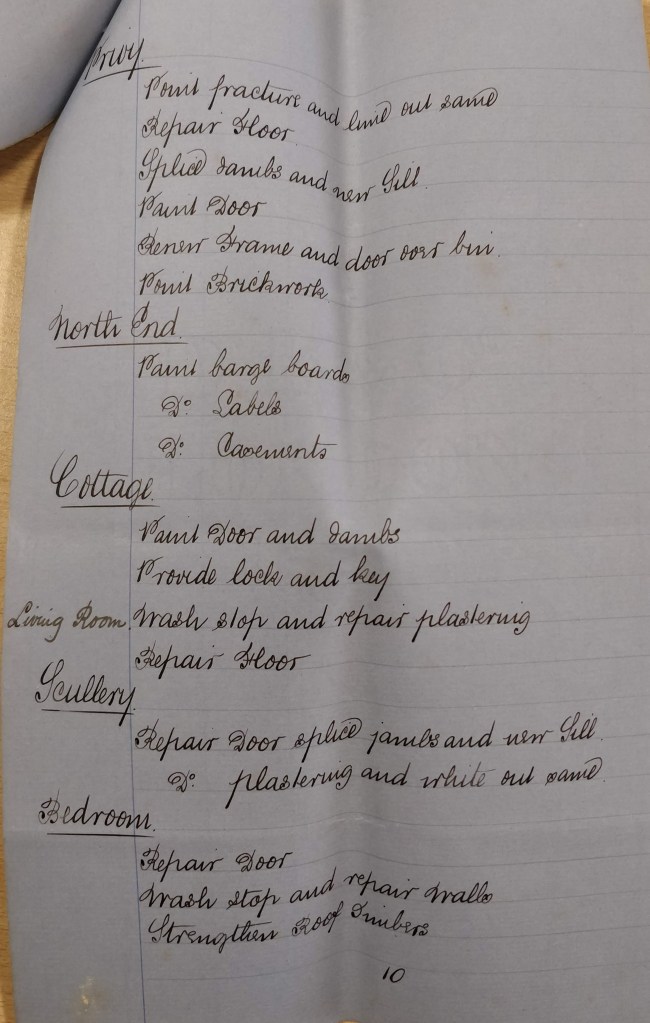 Privy.
Point fracture and lime out same
Repair Floor
Splice Jambs and new Sill.
Paint Door
Renew Frame and door over bin.
Point Brickwork
North End.
Paint barge boards
Do. Labels
Do. Casements
Cottage.
Paint Door and Jambs
Provide lock and key
Living Room. Wash stop and repair plastering
Repair Floor
Scullery.
Repair Door splice jambs and new Sill.
Do. plastering and white out same.
Bedroom.
Repair Door
Wash stop and repair Walls
Strengthen Roof Timbers
10